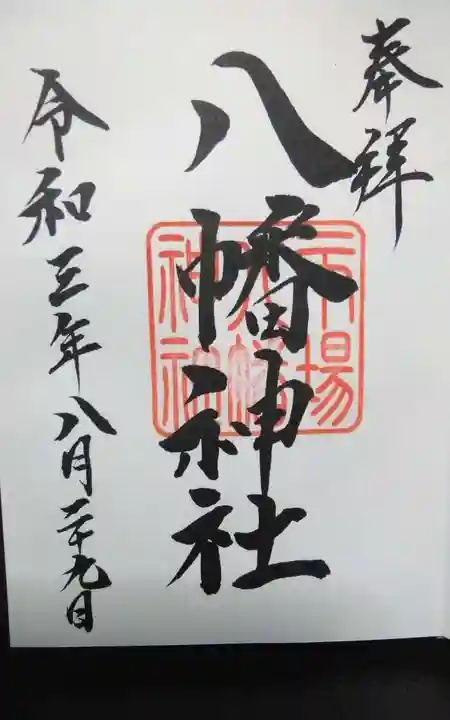 奉拝
八幡神社
市場
八幡
神社
令和三年八月二十九日